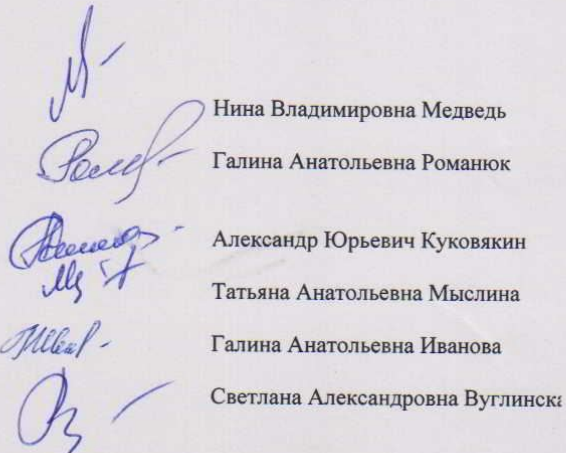 Нина Владимировна Медведь
Галина Анатольевна Романюк
Александр Юрьевич Куковякин
Татьяна Анатольевна Мыслина
Галина Анатольевна Иванова
Светлана Александровна Вуглинска